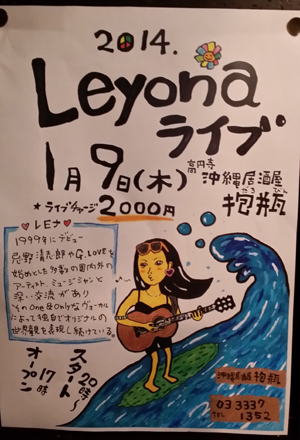 2014.
Leyona
ライブ
1月9日(木)
高円寺
沖縄居酒屋
抱瓶
だち びん
★ライブチャージ 2000円
♥レヨナ♥
1999年にデビュー
忌野清志郎やG.LOVEを
始めとする多数の国内外の
アーティスト、ミュージシャンと
深い交流があり
そのOne&Onlyなヴォーカル
によって独自でオリジナルの
世界観を表現し続けている。
オープン 17時
スタート 20時〜
沖縄居酒屋 抱瓶
03 3337
TEL 1352